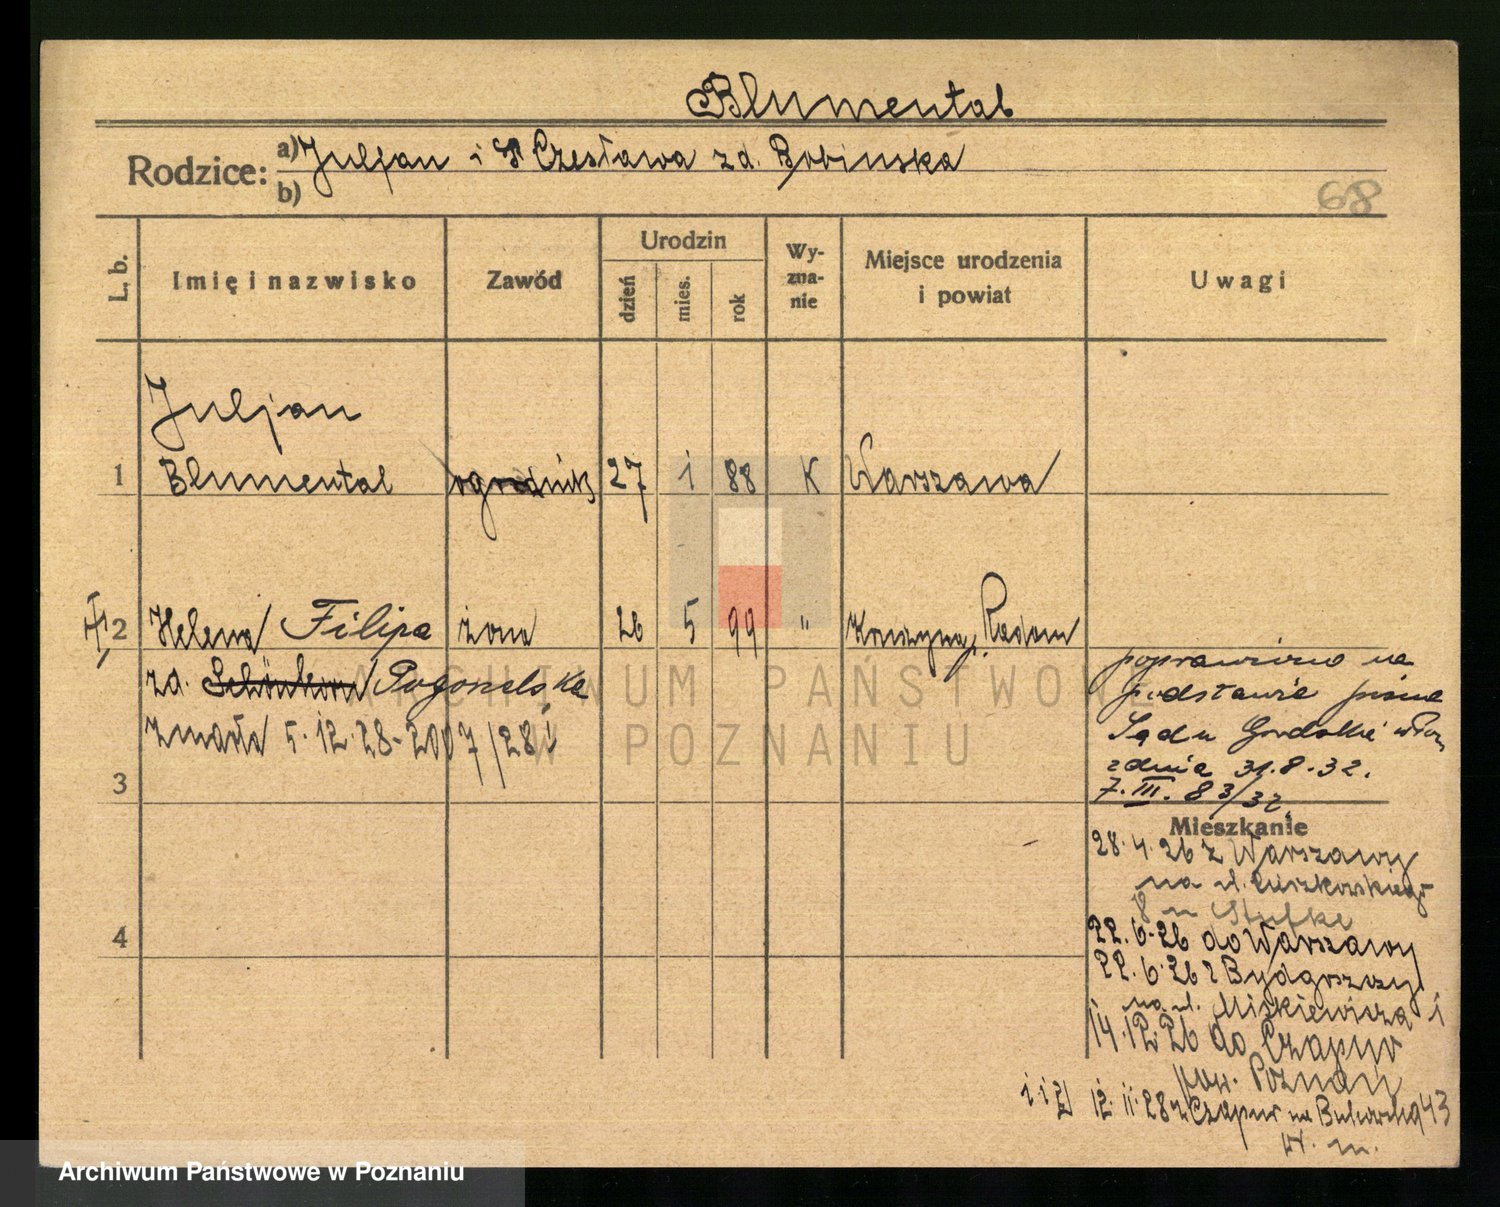 Blumental
Rodzice: a) Juljan i Czesława zd. Bobinska
b)
68
L. b.
Imię i nazwisko
Zawód
Urodzin
dzień
mies.
rok
Wy-
zna-
nie
Miejsce urodzenia
i powiat
Uwagi
Juljan
1 Blumental ogrodnik 27 1 88 K Warszawa
2 Helena Filipa żona 26 5 99 " Radom
zd. Pogonelska
zmarła 5.12.28-2007/28
3
4
poprawiono na
podstawie pisma
Sądu
z dnia 31.8.32.
7. III. 83/32.
Mieszkanie
28.4.26 z Warszawy
na ul.
8
22.6.26 do Warszawy
22.6.26 z Bydgoszczy
na ul. Mickiewicza 1
14.12.26 do Czapur
pow. Poznań
1 i 2 12.11.28 z Czapur na Bukowską 43
ARCHIWUM PAŃSTWOWE
W POZNANIU
Archiwum Państwowe w Poznaniu